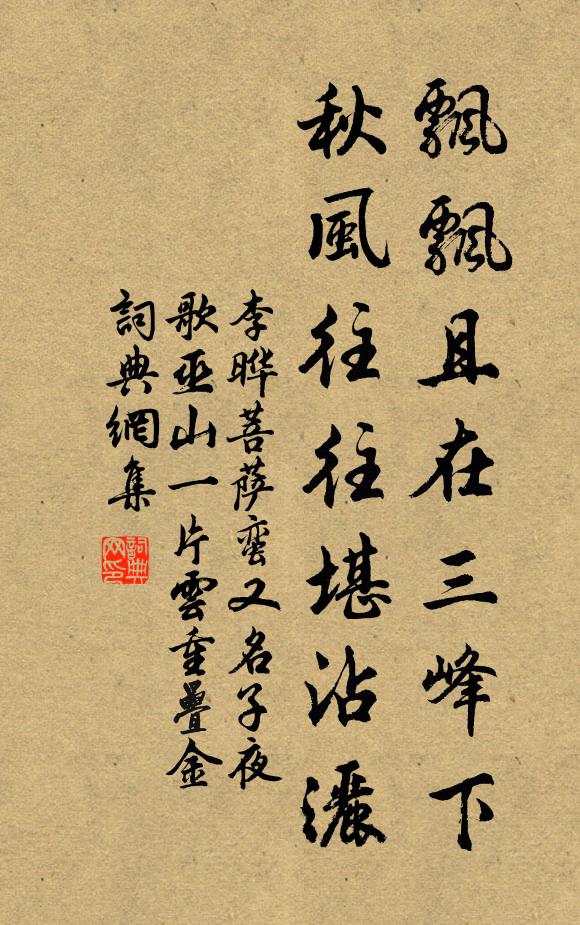 飄飄且在三峰下
秋風往往堪沾灑
李晔菩萨蛮又名子夜
歌巫山一片雲重疊金
詞典網集
詞典网印